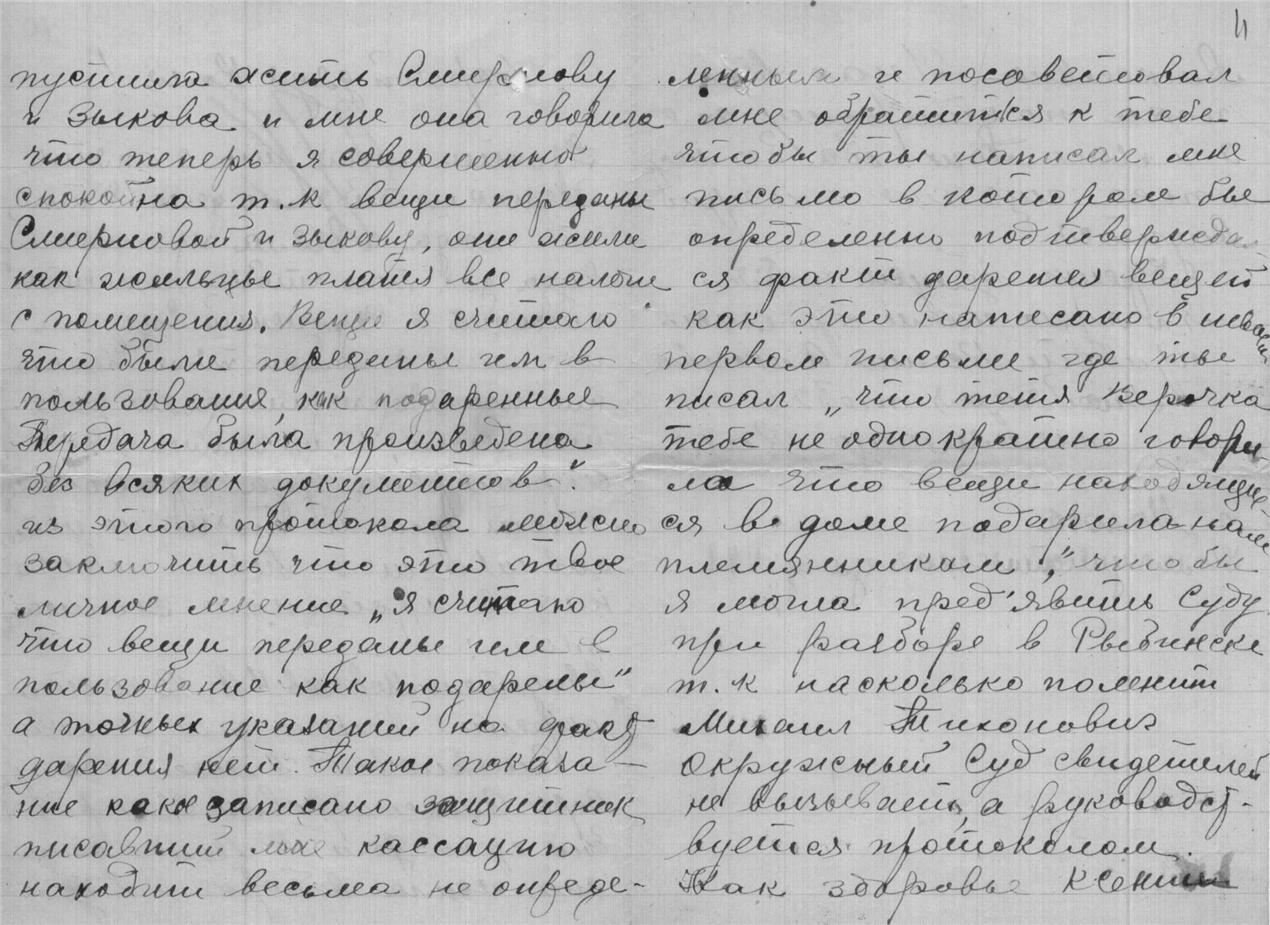 11
пустила жить Смирнову
и Зыкова и мне она говорила
что теперь я совершенно
спокойна т.к вещи переданы
Смирновой и Зыкову, они жили
как жильцы платя все налоги
с помещения. Вещи я считаю
что были переданы им в
пользование, как подаренные
Передача была произведена
без всяких документов".
из этого протокола можно
заключить что это твое
личное мнение „я считаю
что вещи переданы им в
пользование как подарены"
а точных указаний на факт
дарения нет. Такое показа-
ние како записано защитник
писавший мне кассацию
находит весьма не опреде-
ленным и посоветовал
мне обратиться к тебе
чтобы ты написал мне
письмо в котором бы
определенно подтверждал
ся факт дарения вещей
как это написано в твоем
первом письме где ты
писал „что тетя Верочка
тебе не однократно говори-
ла что вещи находящие-
ся в доме подарила нам
племянникам", чтобы
я могла пред'явить Суду
при разборе в Рыбинске
т.к насколько помнит
Михаил Тихонович
Окружный Суд свидетелей
не вызывает, а руководст-
вуется протоколом.
Как здоровье Ксении